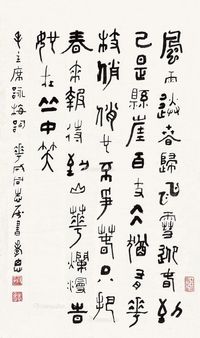 風雨送春歸飛雪迎春到
已是縣崖百丈仌猶有華
枝俏俏也不爭春只把
春來報待到山華爛漫時
她在丛中笑
毛主席詠梅詞 成同志屬書